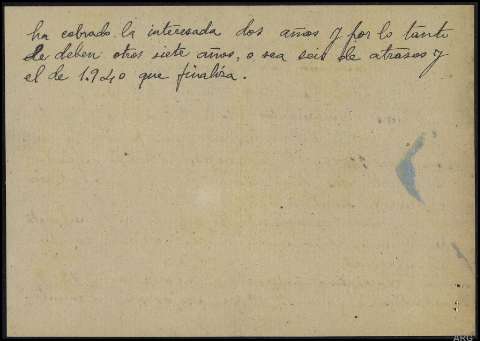 ha cobrado la interesada dos años y por lo tanto
se deben otros siete años, o sea seis de atrasos y
el de 1.940 que finaliza.
ARG